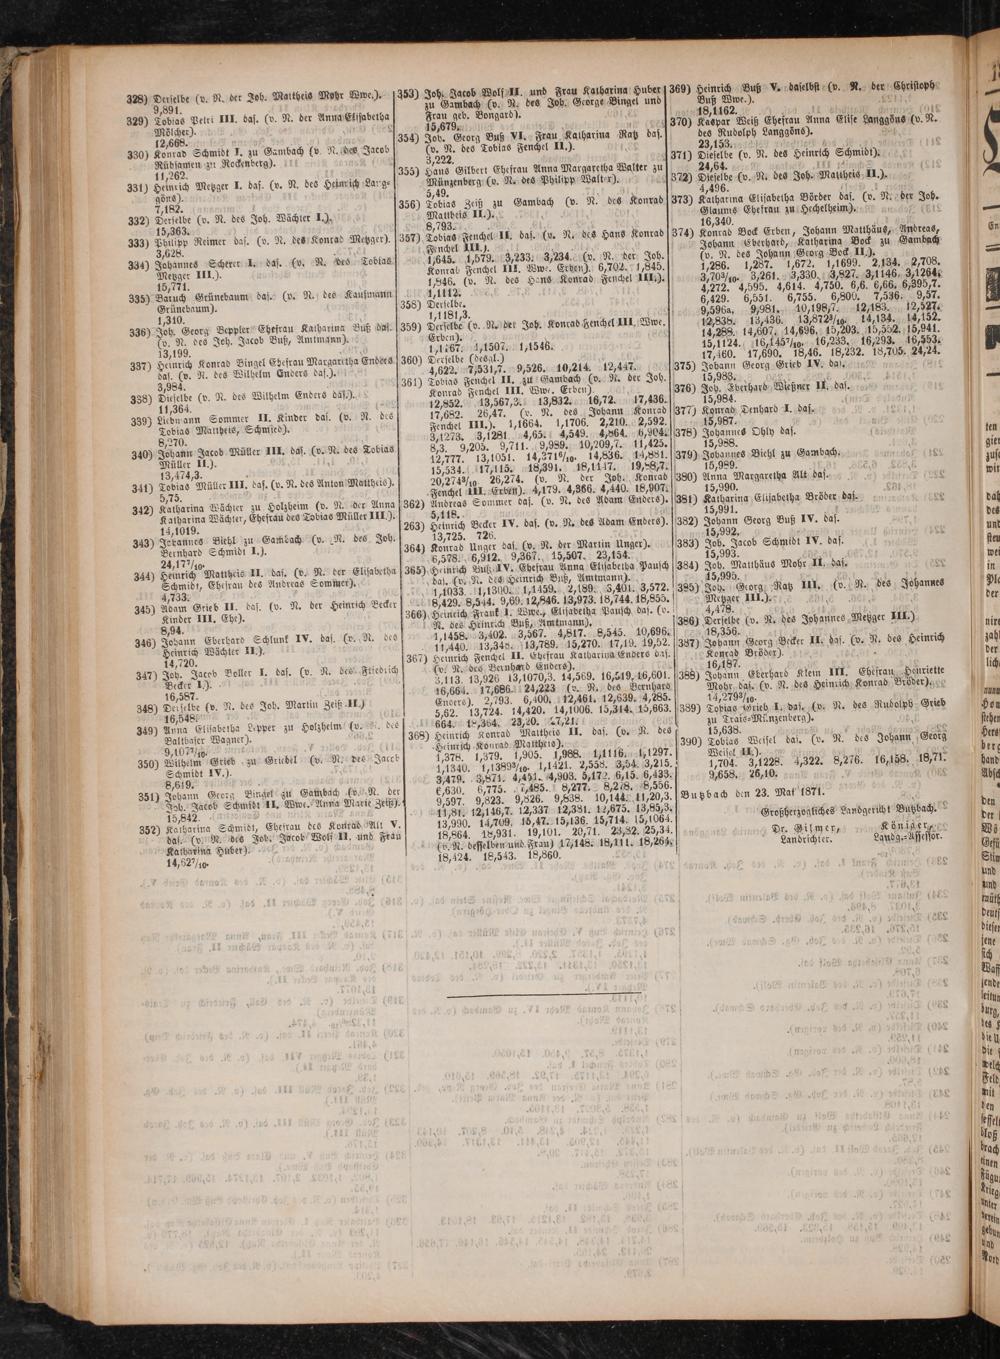 328) Derselbe (v. N. der Joh. Mattheis Mohr Wwe.).
9,891.
329) Tobias Petri III. das. (v. N. der Anna Elisabetha
Mölcher).
12,668.
330) Konrad Schmidt I. zu Gambach (v. N. des Jacob
Rübsamen zu Rockenberg).
11,262.
331) Heinrich Metzger I. das. (v. N. des Heinrich Lang-
göns).
7,182.
332) Derselbe (v. N. des Joh. Wächter I.).
15,363.
333) Philipp Reimer das. (v. N. des Konrad Metzger).
3,628.
334) Johannes Scherer I. das. (v. N. des Tobias
Metzger III.)
15,771.
335) Baruch Grünebaum das. (v. N. des Kaufmann
Grünebaum).
1,310.
336) Joh. Georg Beppler Ehefrau Katharina Buß das.
(v. N. des Joh. Jacob Buß, Amtmann).
13,199.
337) Heinrich Konrad Bingel Ehefrau Margaretha Enders
das. (v. N. des Wilhelm Enders das.).
3,984.
338) Dieselbe (v. N. des Wilhelm Enders das.).
11,364.
339) Liebmann Sommer II. Kinder das. (v. N. des
Tobias Mattheis, Schmied).
8,270.
340) Johann Jacob Müller III. das. (v. N. des Tobias
Müller II.)
13,474,3.
341) Tobias Müller III. das. (v. N. des Anton Mattheis).
5,75.
342) Katharina Wächter zu Holzheim (v. N. der Anna
Katharina Wächter, Ehefrau des Tobias Müller III.).
14,1019.
343) Johannes Biehl zu Gambach (v. N. des Joh.
Bernhard Schmidt I.)
24,17⁷/₁₀.
344) Heinrich Mattheis II. das. (v. N. der Elisabetha
Schmidt, Ehefrau des Andreas Sommer).
4,733.
345) Adam Grieb II. das. (v. N. der Heinrich Becker
Kinder III. Ehe).
8,94.
346) Johann Eberhard Schlunk IV. das. (v. N. des
Heinrich Wächter II.)
14,720.
347) Joh. Jacob Boller I. das. (v. N. des Friedrich
Becker I.).
16,587.
348) Derselbe (v. N. des Joh. Martin Zeiß II.)
16,548.
349) Anna Elisabetha Lepper zu Holzheim (v. N. des
Balthaser Wagner).
9,107⁷/₁₀.
350) Wilhelm Grieb zu Griedel (v. N. des Jacob
Schmidt IV.).
8,619.
351) Johann Georg Bingel zu Gambach (v. N. der
Joh. Jacob Schmidt II. Wwe. Anna Marie Zeiß).
15,842.
352) Katharina Schmidt, Ehefrau des Konrad Alt V.
das. (v. N. des Joh. Jacob Wolf II. und Frau
Katharina Huber).
14,62⁷/₁₀.
353) Joh. Jacob Wolf II. und Frau Katharina Huber
zu Gambach (v. N. des Joh. George Bingel und
Frau geb. Bongard).
15,679.
354) Joh. Georg Buß VI. Frau Katharina Ratz das.
(v. N. des Tobias Fenchel II.)
3,222.
355) Hans Gilbert Ehefrau Anna Margaretha Walter zu
Münzenberg (v. N. des Philipp Walter).
5,49.
356) Tobias Zeiß zu Gambach (v. N. des Konrad
Mattheis II.).
8,793.
357) Tobias Fenchel II. das. (v. N. des Hans Konrad
Fenchel III.).
1,645. 1,579. 3,233. 3,234. (v. N. der Joh.
Konrad Fenchel III. Wwe. Erben). 6,702. 1,845.
1,846. (v. N. des Hans Konrad Fenchel III.).
1,1112.
358) Derselbe.
1,1181,3.
359) Derselbe (v. N. der Joh. Konrad Fenchel III. Wwe.
Erben).
1,1267. 1,1507. 1,1546.
360) Derselbe (desgl.)
4,622. 7,531,7. 9,526. 10,214. 12,447.
361) Tobias Fenchel II. zu Gambach (v. N. der Joh.
Konrad Fenchel III. Wwe. Erben).
12,852. 13,567,3. 13,832. 16,72. 17,436.
17,682. 26,47. (v. N. des Johann Konrad
Fenchel III.). 1,1664. 1,1706. 2,210. 2,592.
3,1273. 3,1281 4,65. 4,549. 4,864. 6,904.
8,3. 9,205. 9,711. 9,989. 10,209,7. 11,425.
12,777. 13,1051. 14,371⁶/₁₀. 14,836. 14,881.
15,534. 17,115. 18,391. 18,1147. 19,88,7.
20,274³/₁₀. 26,274. (v. N. der Joh. Konrad
Fenchel III. Erben). 4,179. 4,366. 4,440. 18,907.
362) Andreas Sommer das. (v. N. des Adam Enders).
5,118.
263) Heinrich Becker IV. das. (v. N. des Adam Enders).
13,725. 726.
364) Konrad Unger das. (v. N. der Martin Unger).
6,578. 6,912. 9,367. 15,507. 23,154.
365) Heinrich Buß IV. Ehefrau Anna Elisabetha Pausch
das. (v. N. des Heinrich Buß, Amtmann).
1,1033. 1,1300. 1,1459. 2,189. 3,401. 3,572.
8,429. 8,544. 9,69. 12,846. 13,973. 18,744. 18,855.
366) Heinrich Frank I. Wwe., Elisabetha Pausch das. (v.
N. des Heinrich Buß, Amtmann).
1,1458. 3,402. 3,567. 4,817. 8,545. 10,696.
11,440. 13,348. 13,789. 15,270. 17,19. 19,52.
367) Heinrich Fenchel II. Ehefrau Katharina Enders das.
(v. N. des Bernhard Enders).
3,113. 13,926 13,1070,3. 14,569. 16,519. 16,601.
16,664. 17,686. 24,223 (v. N. des Bernhard
Enders). 2,793. 6,400. 12,461. 12,639. 4,285.
5,62. 13,724. 14,420. 14,1006. 15,314. 15,663.
664. 18,364. 23,20. 27,21.
368) Heinrich Konrad Mattheis II. das. (v. N. des
Heinrich Konrad Mattheis).
1,378. 1,379. 1,905. 1,988. 1,1116. 1,1297.
1,1340. 1,1389³/₁₀. 1,1421. 2,558. 3,54. 3,215.
3,479. 3,871. 4,451. 4,903. 5,172. 6,15. 6,433.
6,630. 6,775. 7,485. 8,277. 8,278. 8,556.
9,597. 9,823. 9,826. 9,838. 10,144. 11,20,3.
11,81. 12,146,7. 12,337 12,381. 12,675. 13,85,3.
13,990. 14,709. 15,47. 15,136. 15,714. 15,1064.
18,864. 18,931. 19,101. 20,71. 23,32. 25,34.
(v. N. desselben und Frau) 17,148. 18,111. 18,264.
18,424. 18,543. 18,860.
369) Heinrich Buß V. daselbst (v. N. der Christoph
Buß Wwe.).
18,1162.
370) Kaspar Weiß Ehefrau Anna Elise Langgöns (v. N.
des Rudolph Langgöns).
23,153.
371) Dieselbe (v. N. des Heinrich Schmidt).
24,64.
372) Dieselbe (v. N. des Joh. Mattheis II.).
4,496.
373) Katharina Elisabetha Börder das. (v. N. der Joh.
Glaums Ehefrau zu Hechelheim).
16,340.
374) Konrad Bock Erben, Johann Matthäus, Andreas,
Johann Eberhard, Katharina Bock zu Gambach
(v. N. des Johann Georg Bock II.)
1,286. 1,287. 1,672. 1,1699. 2,134. 2,708.
3,70³/₁₀. 3,261. 3,330. 3,827. 3,1146. 3,1264.
4,272. 4,595. 4,614. 4,750. 6,6. 6,66. 6,395,7.
6,429. 6,551. 6,755. 6,800. 7,536. 9,57.
9,596a. 9,981. 10,198,7. 12,183. 12,527.
12,838. 13,436. 13,872³/₁₀. 14,134. 14,152.
14,288. 14,607. 14,696. 15,203. 15,552. 15,941.
15,1124. 16,145⁷/₁₀. 16,233. 16,293. 16,553.
17,460. 17,690. 18,46. 18,232. 18,705. 24,24.
375) Johann Georg Grieb IV. das.
15,983.
376) Joh. Eberhard Wießner II. das.
15,984.
377) Konrad Denhard I. das.
15,987.
378) Johannes Ohly das.
15,988.
379) Johannes Biehl zu Gambach.
15,989.
380) Anna Margaretha Alt das.
15,990.
381) Katharina Elisabetha Bröder das.
15,991.
382) Johann Georg Buß IV. das.
15,992.
383) Joh. Jacob Schmidt IV. das.
15,993.
384) Joh. Matthäus Mohr II. das.
15,995.
385) Joh. Georg Ratz III. (v. N. des Johannes
Metzger III.).
4,478.
386) Derselbe (v. N. des Johannes Metzger III.)
18,356.
387) Johann Georg Becker II. das. (v. N. des Heinrich
Konrad Bröder).
16,187.
388) Johann Eberhard Klein III. Ehefrau Henriette
Mohr das. (v. N. des Heinrich Konrad Bröder).
14,279³/₁₀.
389) Tobias Grieb I. das. (v. N. des Rudolph Grieb
zu Trais-Münzenberg).
15,638.
390) Tobias Weisel das. (v. N. des Johann Georg
Weisel II.)
1,704. 3,1228. 4,322. 8,276. 16,158. 18,71.
9,658. 26,10.
Butzbach den 23. Mai 1871.
Großherzogliches Landgericht Butzbach.
Dr. Gilmer, Königer,
Landrichter. Landg.-Assessor.